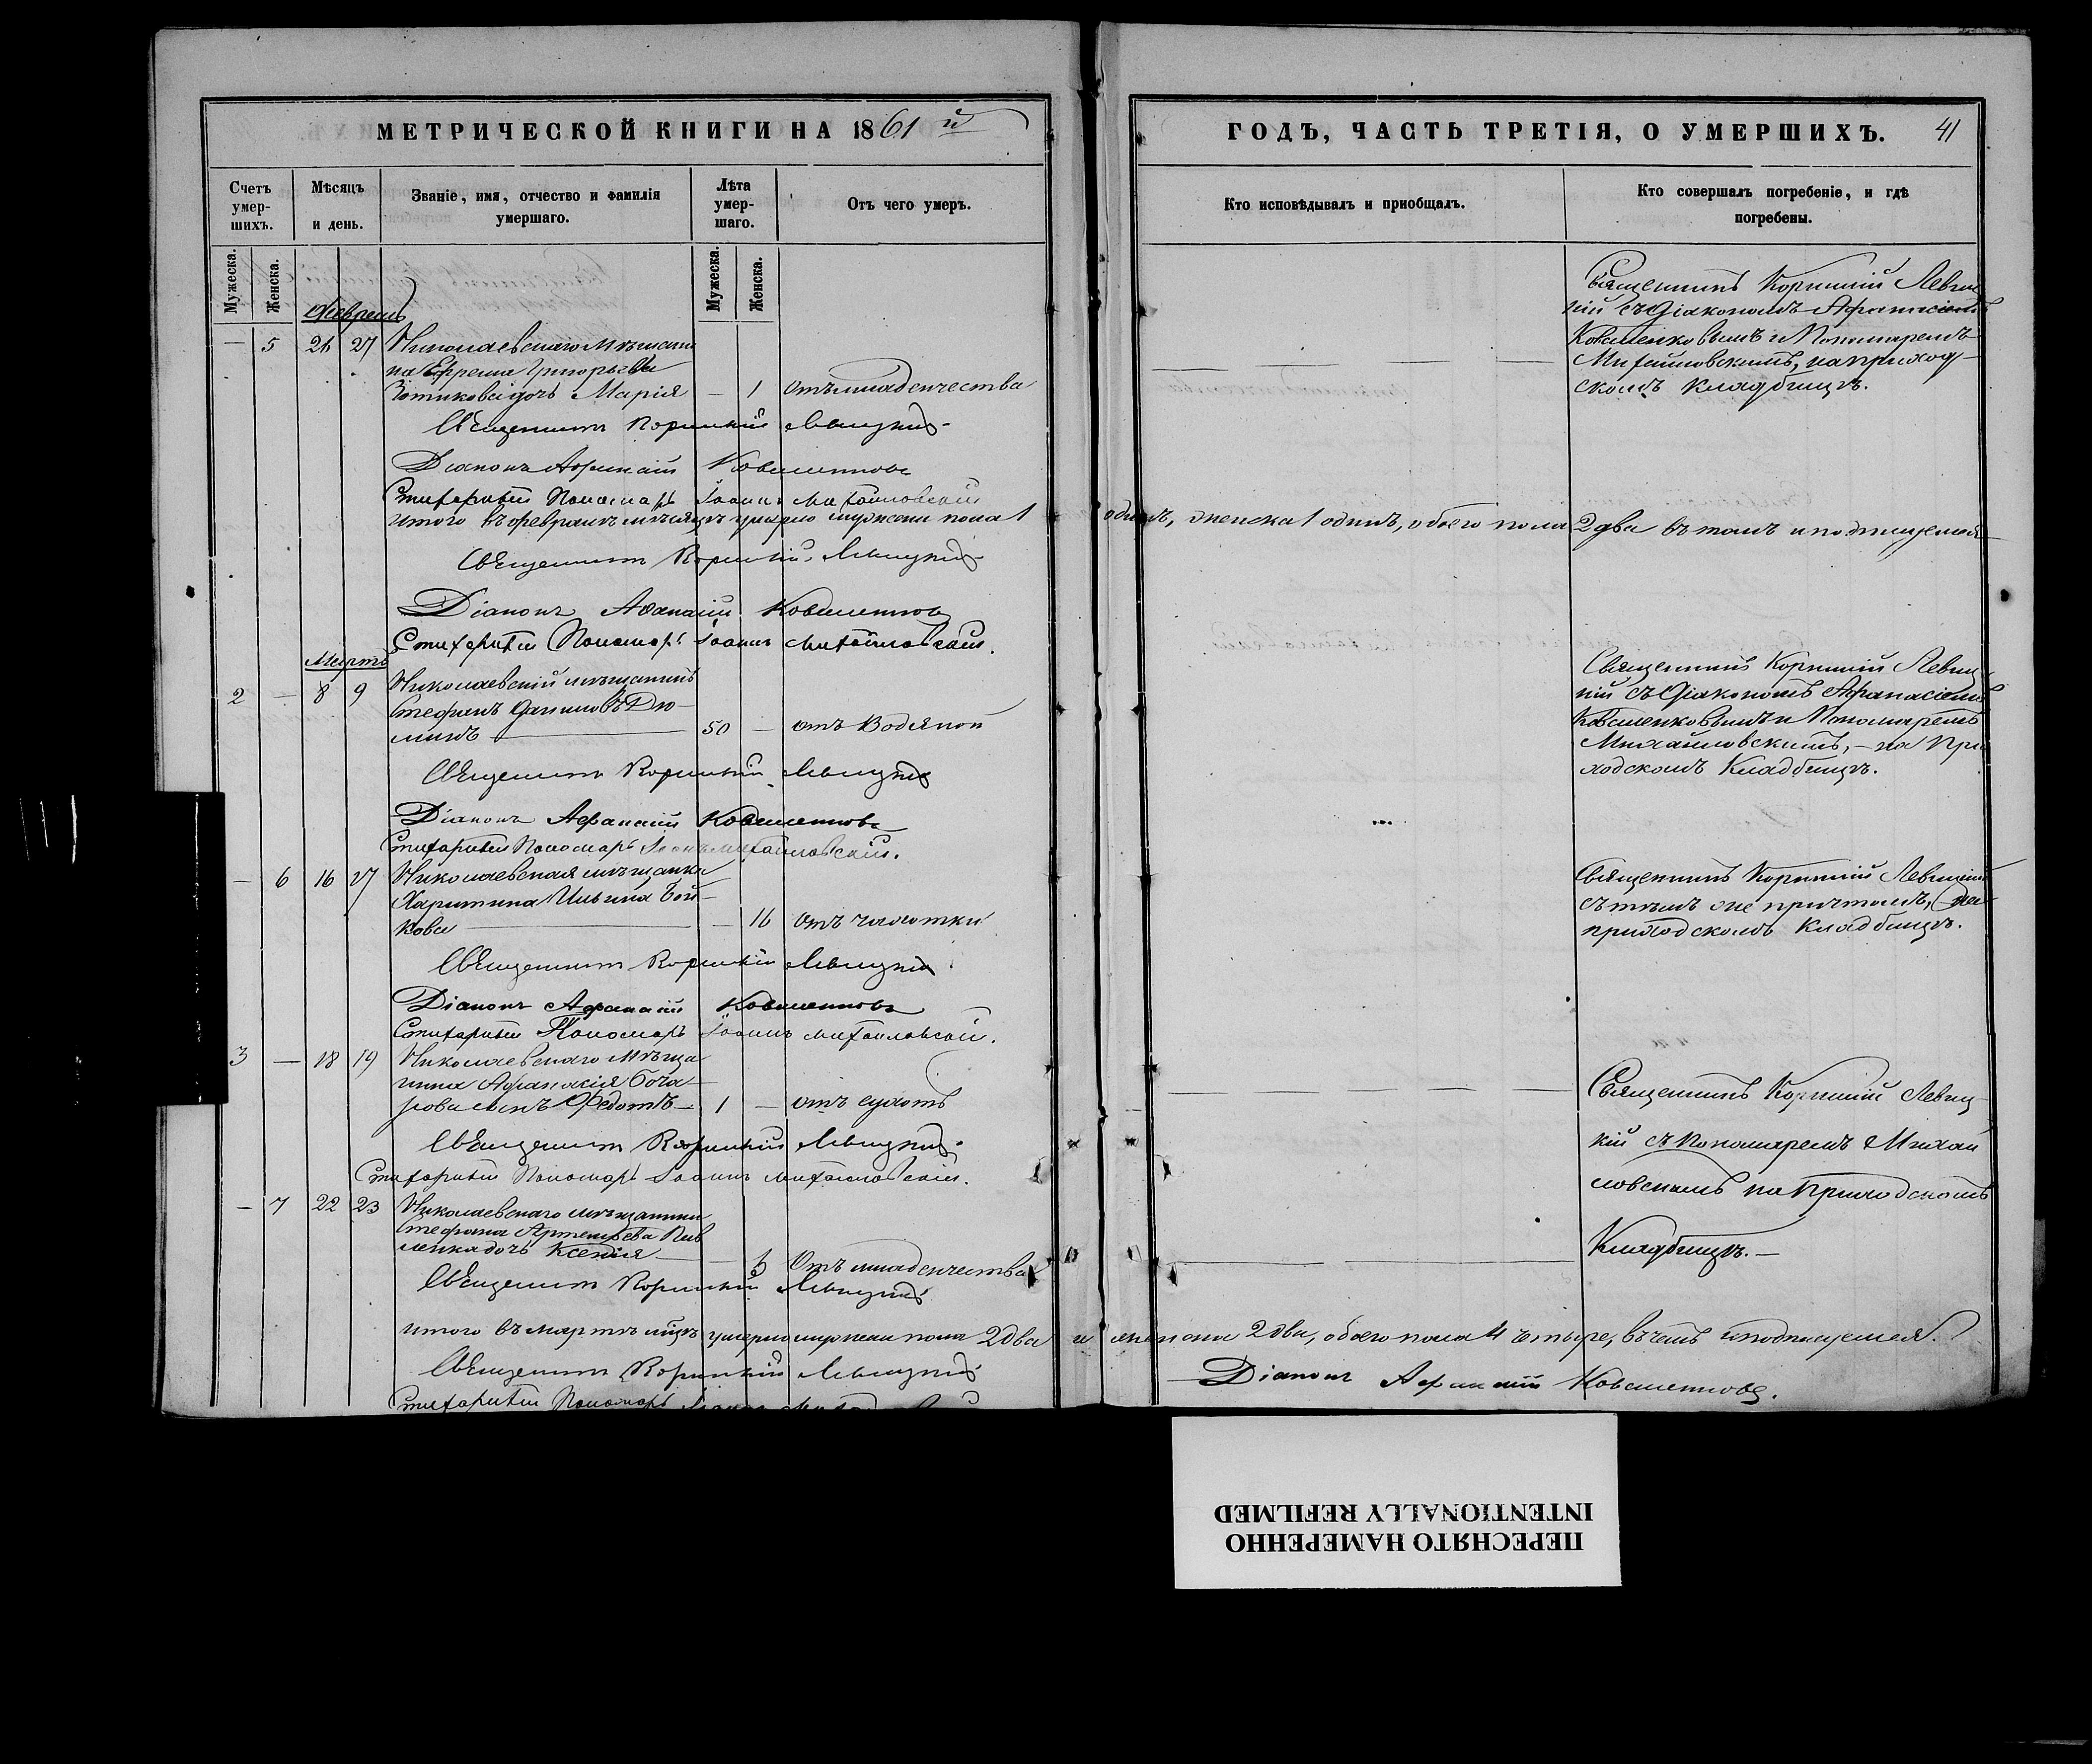 МЕТРИЧЕСКОЙ КНИГИ НА 1861й
Счетъ умер-шихъ.
Мѣсяцъ и день.
Званіе, имя, отчество и фамилія умершаго.
Лѣта умер-шаго.
Отъ чего умеръ.
Мужеска.
Женска.
Мужеска.
Женска.
Февраль
— 5 26 27 Николаевскаго мѣщани
на Ефрема Григорьева
дочь Марія — 1 Отъ младенчества
Священникъ Корнилій Левицкій
Діаконъ Афанасій Коваленковъ
Стихарный Пономарь Іоаннъ Михайловскій
Итого въ февралѣ мѣсяцѣ умерло мужеска пола 1
Священникъ Корнилій Левицкій
Діаконъ Афанасій Коваленковъ
Стихарный Пономарь Іоаннъ Михайловскій.
Мартъ
2 — 8 9 Николаевскій мѣщанинъ
Стефанъ Даниловъ Дю-
минъ 50 — отъ Водяной
Священникъ Корнилій Левицкій
Діаконъ Афанасій Коваленковъ
Стихарный Пономарь Іоаннъ Михайловскій.
— 6 16 27 Николаевская мѣщанка
Харитина Ильина Бой-
кова — 16 Отъ чахотки
Священникъ Корнилій Левицкій
Діаконъ Афанасій Коваленковъ
Стихарный Пономарь Іоаннъ Михайловскій.
3 — 18 19 Николаевскаго Мѣща
нина Афанасія Боча-
рова сынъ Федотъ 1 — отъ сухотъ
Священникъ Корнилій Левицкій
Стихарный Пономарь Іоаннъ Михайловскій.
— 7 22 23 Николаевскаго мѣщанина
Стефана Артемьева
дочь Ксенія — Отъ младенчества
Священникъ Корнилій Левицкій
Итого въ мартѣ мцѣ умерло мужеска пола 2 два
Священникъ Корнилій Левицкій
Стихарный Пономарь Іоаннъ
ГОДЪ, ЧАСТЬ ТРЕТІЯ, О УМЕРШИХЪ. 41
Кто исповѣдывалъ и пріобщалъ.
Кто совершалъ погребеніе, и гдѣ погребены.
Священникъ Корнилій Левиц
кій съ Діакономъ Афанасіемъ
Коваленковымъ и Пономаремъ
Михайловскимъ, на приход-
скомъ кладбищѣ.
одинъ, женска 1 одинъ, обоего пола 2 два въ томъ и подписуемся
Священникъ Корнилій Левиц
кій съ Діакономъ Афанасіемъ
Коваленковымъ и Пономаремъ
Михайловскимъ, — на При
ходскомъ Кладбищѣ.
Священникъ Корнилій Левицкій
съ тѣмъ же причтомъ, на
приходскомъ Кладбищѣ.
Священникъ Корнилій Левиц
кій съ Пономаремъ Михай
ловскимъ на Приходскомъ
Кладбищѣ. —
и женска 2 два, обоего пола 4 четыре, въ чемъ и подписуемся.
Діаконъ Афанасій Коваленковъ.
ПЕРЕСНЯТО НАМЕРЕННО
INTENTIONALLY REFILMED